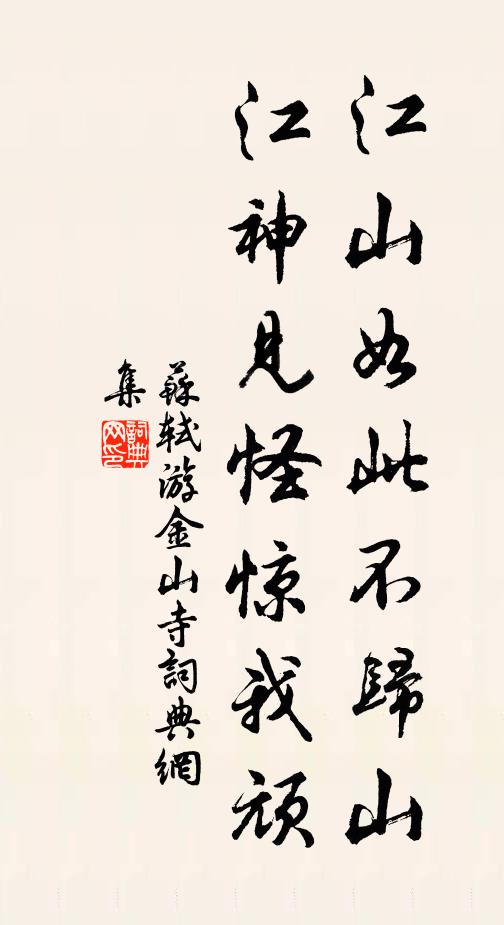 江山如此不歸山
江神見怪惊我頑
蘇軾游金山寺詞典網
集
詞典網印